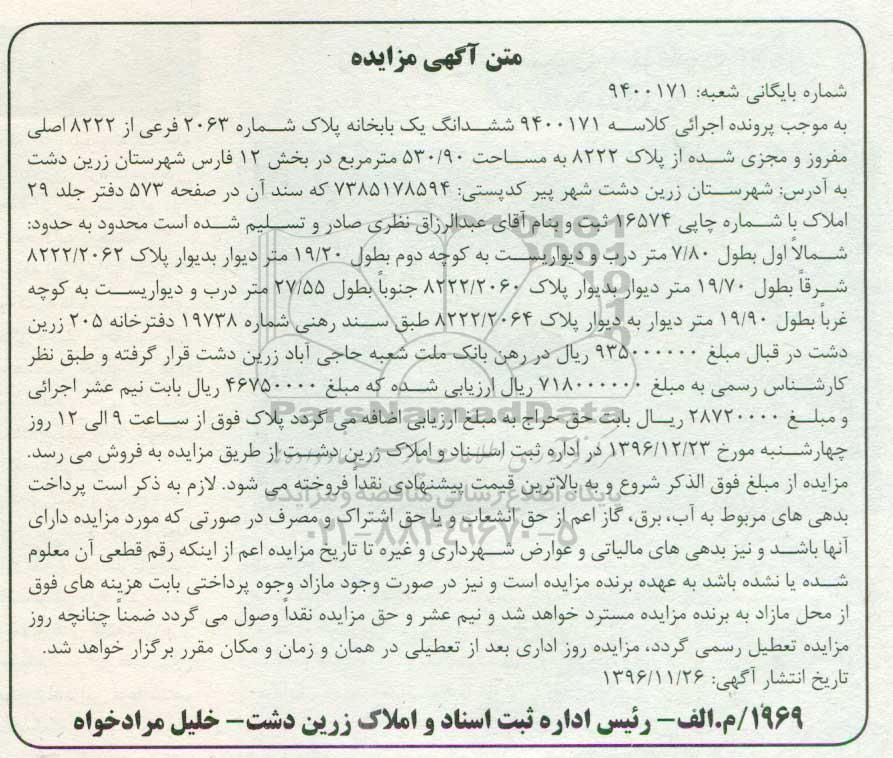 متن آگهی مزایده
شماره بایگانی شعبه: ۹۴۰۰۱۷۱
به موجب پرونده اجرائی کلاسه ۹۴۰۰۱۷۱ ششدانگ یک بابخانه پلاک شماره ۲۰۶۳ فرعی از ۸۲۲۲ اصلی
مفروز و مجزی شده از پلاک ۸۲۲۲ به مساحت ۵۳۰/۹۰ مترمربع در بخش ۱۲ فارس شهرستان زرین دشت
به آدرس: شهرستان زرین دشت شهر پیر کدپستی: ۷۳۸۵۱۷۸۵۹۴ که سند آن در صفحه ۵۷۳ دفتر جلد ۲۹
املاک با شماره چاپی ۱۶۵۷۴ ثبت و بنام آقای عبدالرزاق نظری صادر و تسلیم شده است محدود به حدود:
شمالاً اول بطول ۷/۸۰ متر درب و دیواریست به کوچه دوم بطول ۱۹/۲۰ متر دیوار بدیوار پلاک ۸۲۲۲/۲۰۶۲
شرقاً بطول ۱۹/۷۰ متر دیوار بدیوار پلاک ۸۲۲۲/۲۰۶۰ جنوباً بطول ۲۷/۵۵ متر درب و دیواریست به کوچه
غرباً بطول ۱۹/۹۰ متر دیوار به دیوار پلاک ۸۲۲۲/۲۰۶۴ طبق سند رهنی شماره ۱۹۷۳۸ دفترخانه ۲۰۵ زرین
دشت در قبال مبلغ ۹۳۵۰۰۰۰۰۰ ریال در رهن بانک ملت شعبه حاجی آباد زرین دشت قرار گرفته و طبق نظر
کارشناس رسمی به مبلغ ۷۱۸۰۰۰۰۰۰ ریال ارزیابی شده که مبلغ ۴۶۷۵۰۰۰۰ ریال بابت نیم عشر اجرائی
و مبلغ ۲۸۷۲۰۰۰۰ ریال بابت حق حراج به مبلغ ارزیابی اضافه می گردد پلاک فوق از ساعت ۹ الی ۱۲ روز
چهارشنبه مورخ ۱۳۹۶/۱۲/۲۳ در اداره ثبت اسناد و املاک زرین دشت از طریق مزایده به فروش می رسد.
مزایده از مبلغ فوق الذکر شروع و به بالاترین قیمت پیشنهادی نقداً فروخته می شود. لازم به ذکر است پرداخت
بدهی های مربوط به آب، برق، گاز اعم از حق انشعاب و یا حق اشتراک و مصرف در صورتی که مورد مزایده دارای
آنها باشد و نیز بدهی های مالیاتی و عوارض شهرداری و غیره تا تاریخ مزایده اعم از اینکه رقم قطعی آن معلوم
شده یا نشده باشد به عهده برنده مزایده است و نیز در صورت وجود مازاد وجوه پرداختی بابت هزینه های فوق
از محل مازاد به برنده مزایده مسترد خواهد شد و نیم عشر و حق مزایده نقداً وصول می گردد ضمناً چنانچه روز
مزایده تعطیل رسمی گردد، مزایده روز اداری بعد از تعطیلی در همان و زمان و مکان مقرر برگزار خواهد شد.
تاریخ انتشار آگهی: ۱۳۹۶/۱۱/۲۶
۱۹۶۹/م.الف- رئیس اداره ثبت اسناد و املاک زرین دشت- خلیل مرادخواه
ParsNamadData
پایگاه اطلاع رسانی مناقصه و مزایده
۰۲۱-۸۸۳۴۹۶۷۰-۵